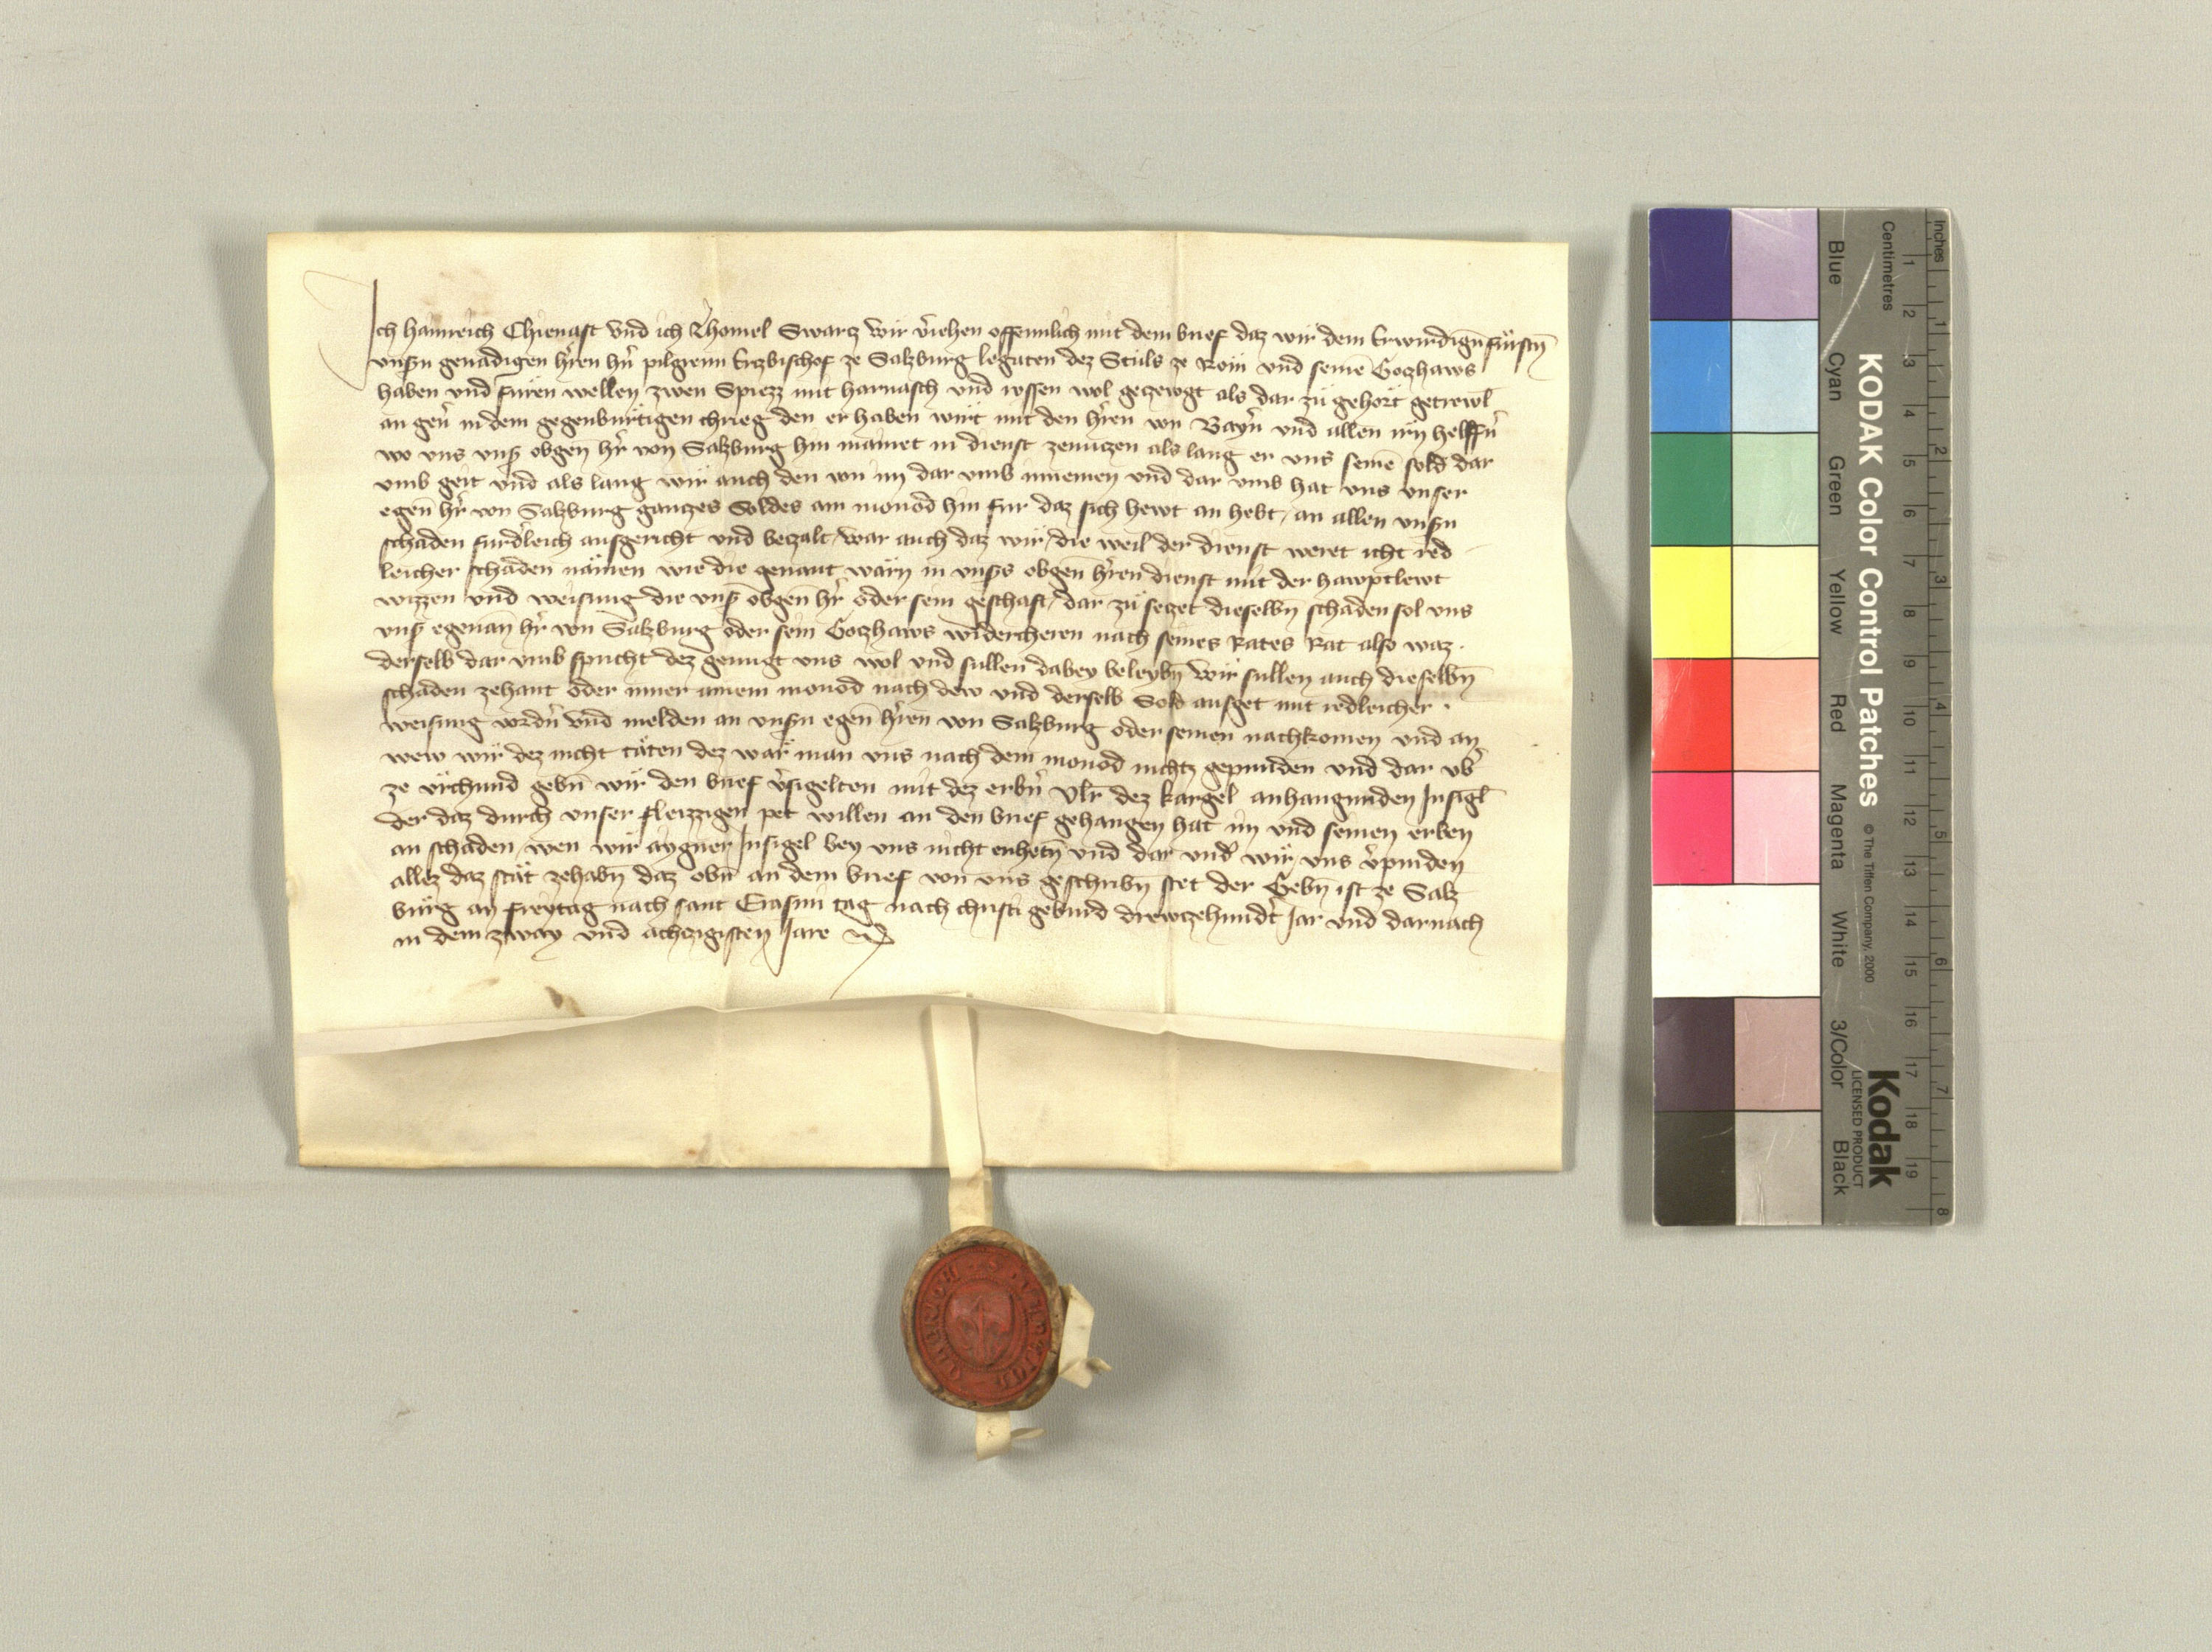 Ich hainreich Chienast vnd ich Thomel Swartz wir v̓iehen offennlich mit dem brief daz wir dem Erwirdign̄ fürstn̄
vnsn̄ genadigen h̓ren hn̓ pilgreim Ertzbischof ze Salzburg legaten dez Stuls ze Rom̄ vnd seinē Gotzhaws
haben vnd füren wellen zwen Spiezz mit harnasch vnd rossen wol getzewgt als dar zů gehört getrewl̄
an gen̓ in dem gegenbürtigen chrieg den er haben wirt mit den h̓ren von Bayrn̓ vnd allen irn̄ helffn̓
wo vns vns̓ obgen̄ hr̓ von Salzburg hin mainet in dienst zenutzen als lang er vns seinē sold dar
vmb geit vnd als lang wir auch den von im dar vmb innemen vnd dar vmb hat vns vnser
egen̄ hr̓ von Salzburg gantzes Soldes ain monod hin fur daz sich hewt an hebt / an allen vnsn̄
schaden furdleich ausgericht vnd betzalt / wär auch daz wir / die weil der dienst weret icht red
leicher schäden nämen wie die genant wärn in vns̓s obgen̄ h̓ren dienst mit der hawptlewt
wizzen vnd weisung die vns̓ obgen̄ hr̓ oder sein geschäft / dar zů setzet dieselbn̄ schaden sol vns
vns̓ egenan̄ hr̓ von Salzburg oder sein Gotzhaws widercheren nach seines Rates Rat also waz
derselb dar vmb spricht dez genügt vns wol vnd sullen dabey beleybn̄ wir sullen auch dieselbn̄
schäden zehant oder inner ainem monod nach dew vnd derselb Sold ausget mit redleicher
weisung vordn̓ vnd melden an vnsn̄ egen̄ h̓ren von Salzburg oder seinen nachkomen vnd an
wew wir dez nicht täten dez wär man vns nach dem monod nichtz gepunden vnd dar vb̓
ze vrchund gebn̄ wir den brief v̓sigelten mit dez erbn̓ Vlr̄ dez kargel anhangunden Insigl̄
der daz durch vnser fleizzigen pet willen an den brief gehangen hat im vnd seinen erben
an schaden wen wir aygner Insigel bey vns nicht enhetn̄ vnd dar vnd̓ wir vns v̓pinden
allez daz stät zehabn̄ daz obn̄ an dem brief von vns geschribn̄ stet der Gebn̄ ist ze Salz
burg an freytag nach sant Erasmi tag nach christi geburd drewtzehundt̓ Jar vnd darnach
in dem zway vnd achtzigisten Jare
KODAK Color Control Patches © The Tiffen Company, 2000
Kodak
LICENSED PRODUCT
Inches 1 2 3 4 5 6 7 8
Centimetres 1 2 3 4 5 6 7 8 9 10 11 12 13 14 15 16 17 18 19
Blue Cyan Green Yellow Red Magenta White 3/Color Black